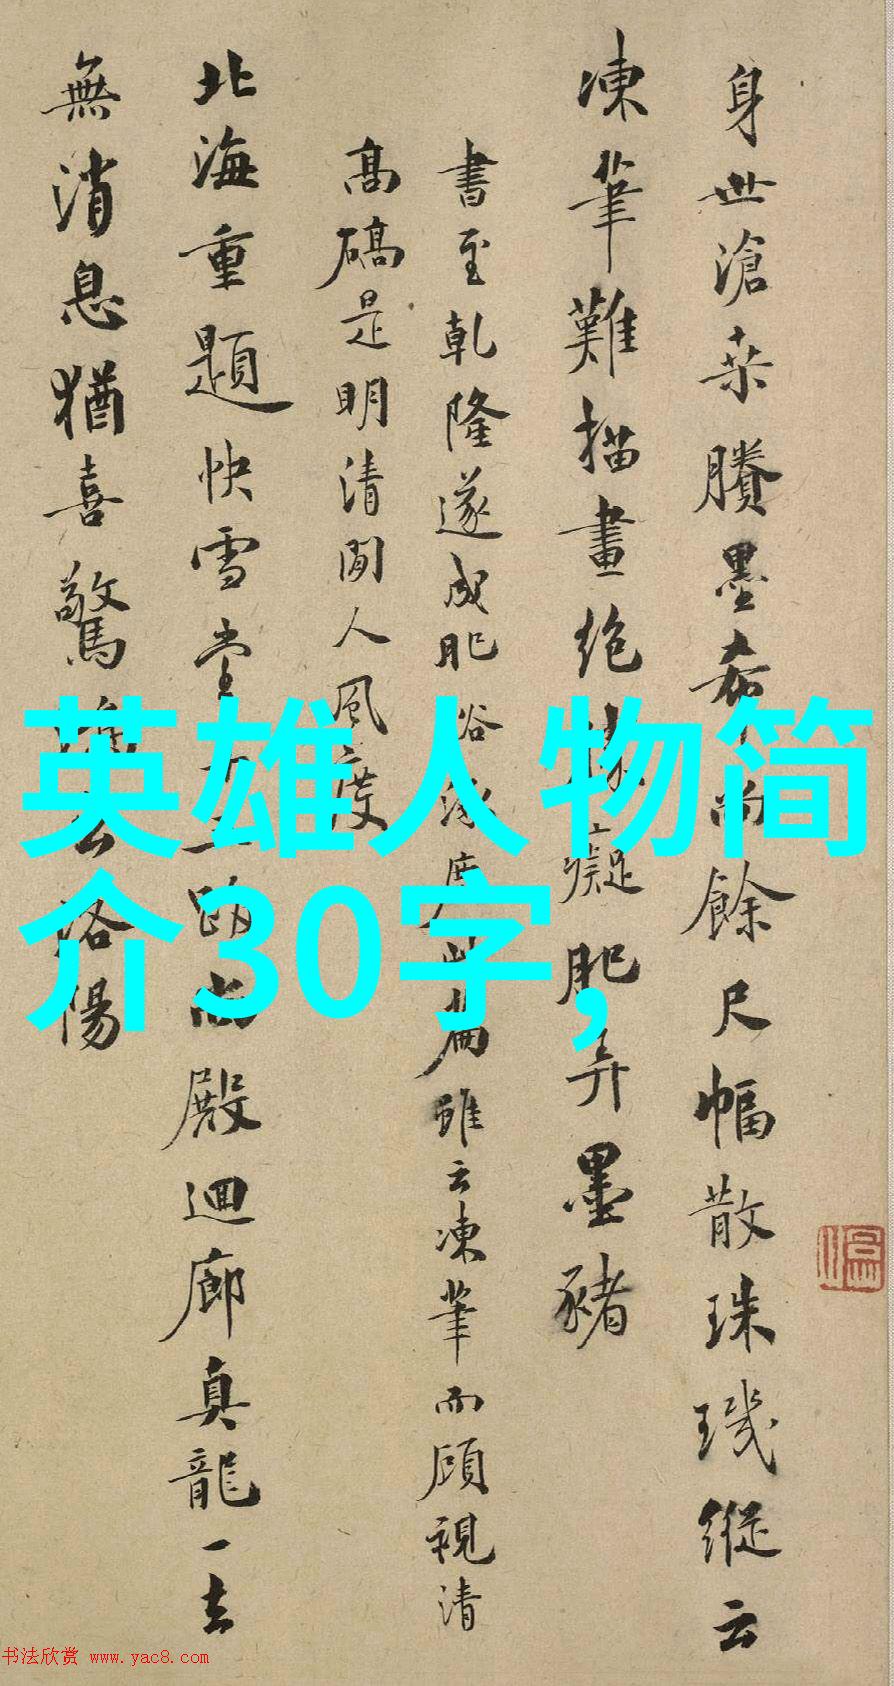 身世滄桑賸墨希尚餘尺幅散珠璣縱云
凍筆難描畫絶癡肥弄墨豬
書至乾隆遂成肥俗庶此篇雖云凍筆而顧視清
高矯是明清間人風度
北海重題快雪堂殿迴廊真龍一去
無消息猶喜驚洛陽
英雄人物简
介30字,
书法欣赏 www.yac8.com